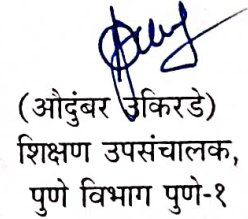 (औदुंबर उकिरडे)
शिक्षण उपसंचालक,
पुणे विभाग पुणे-१